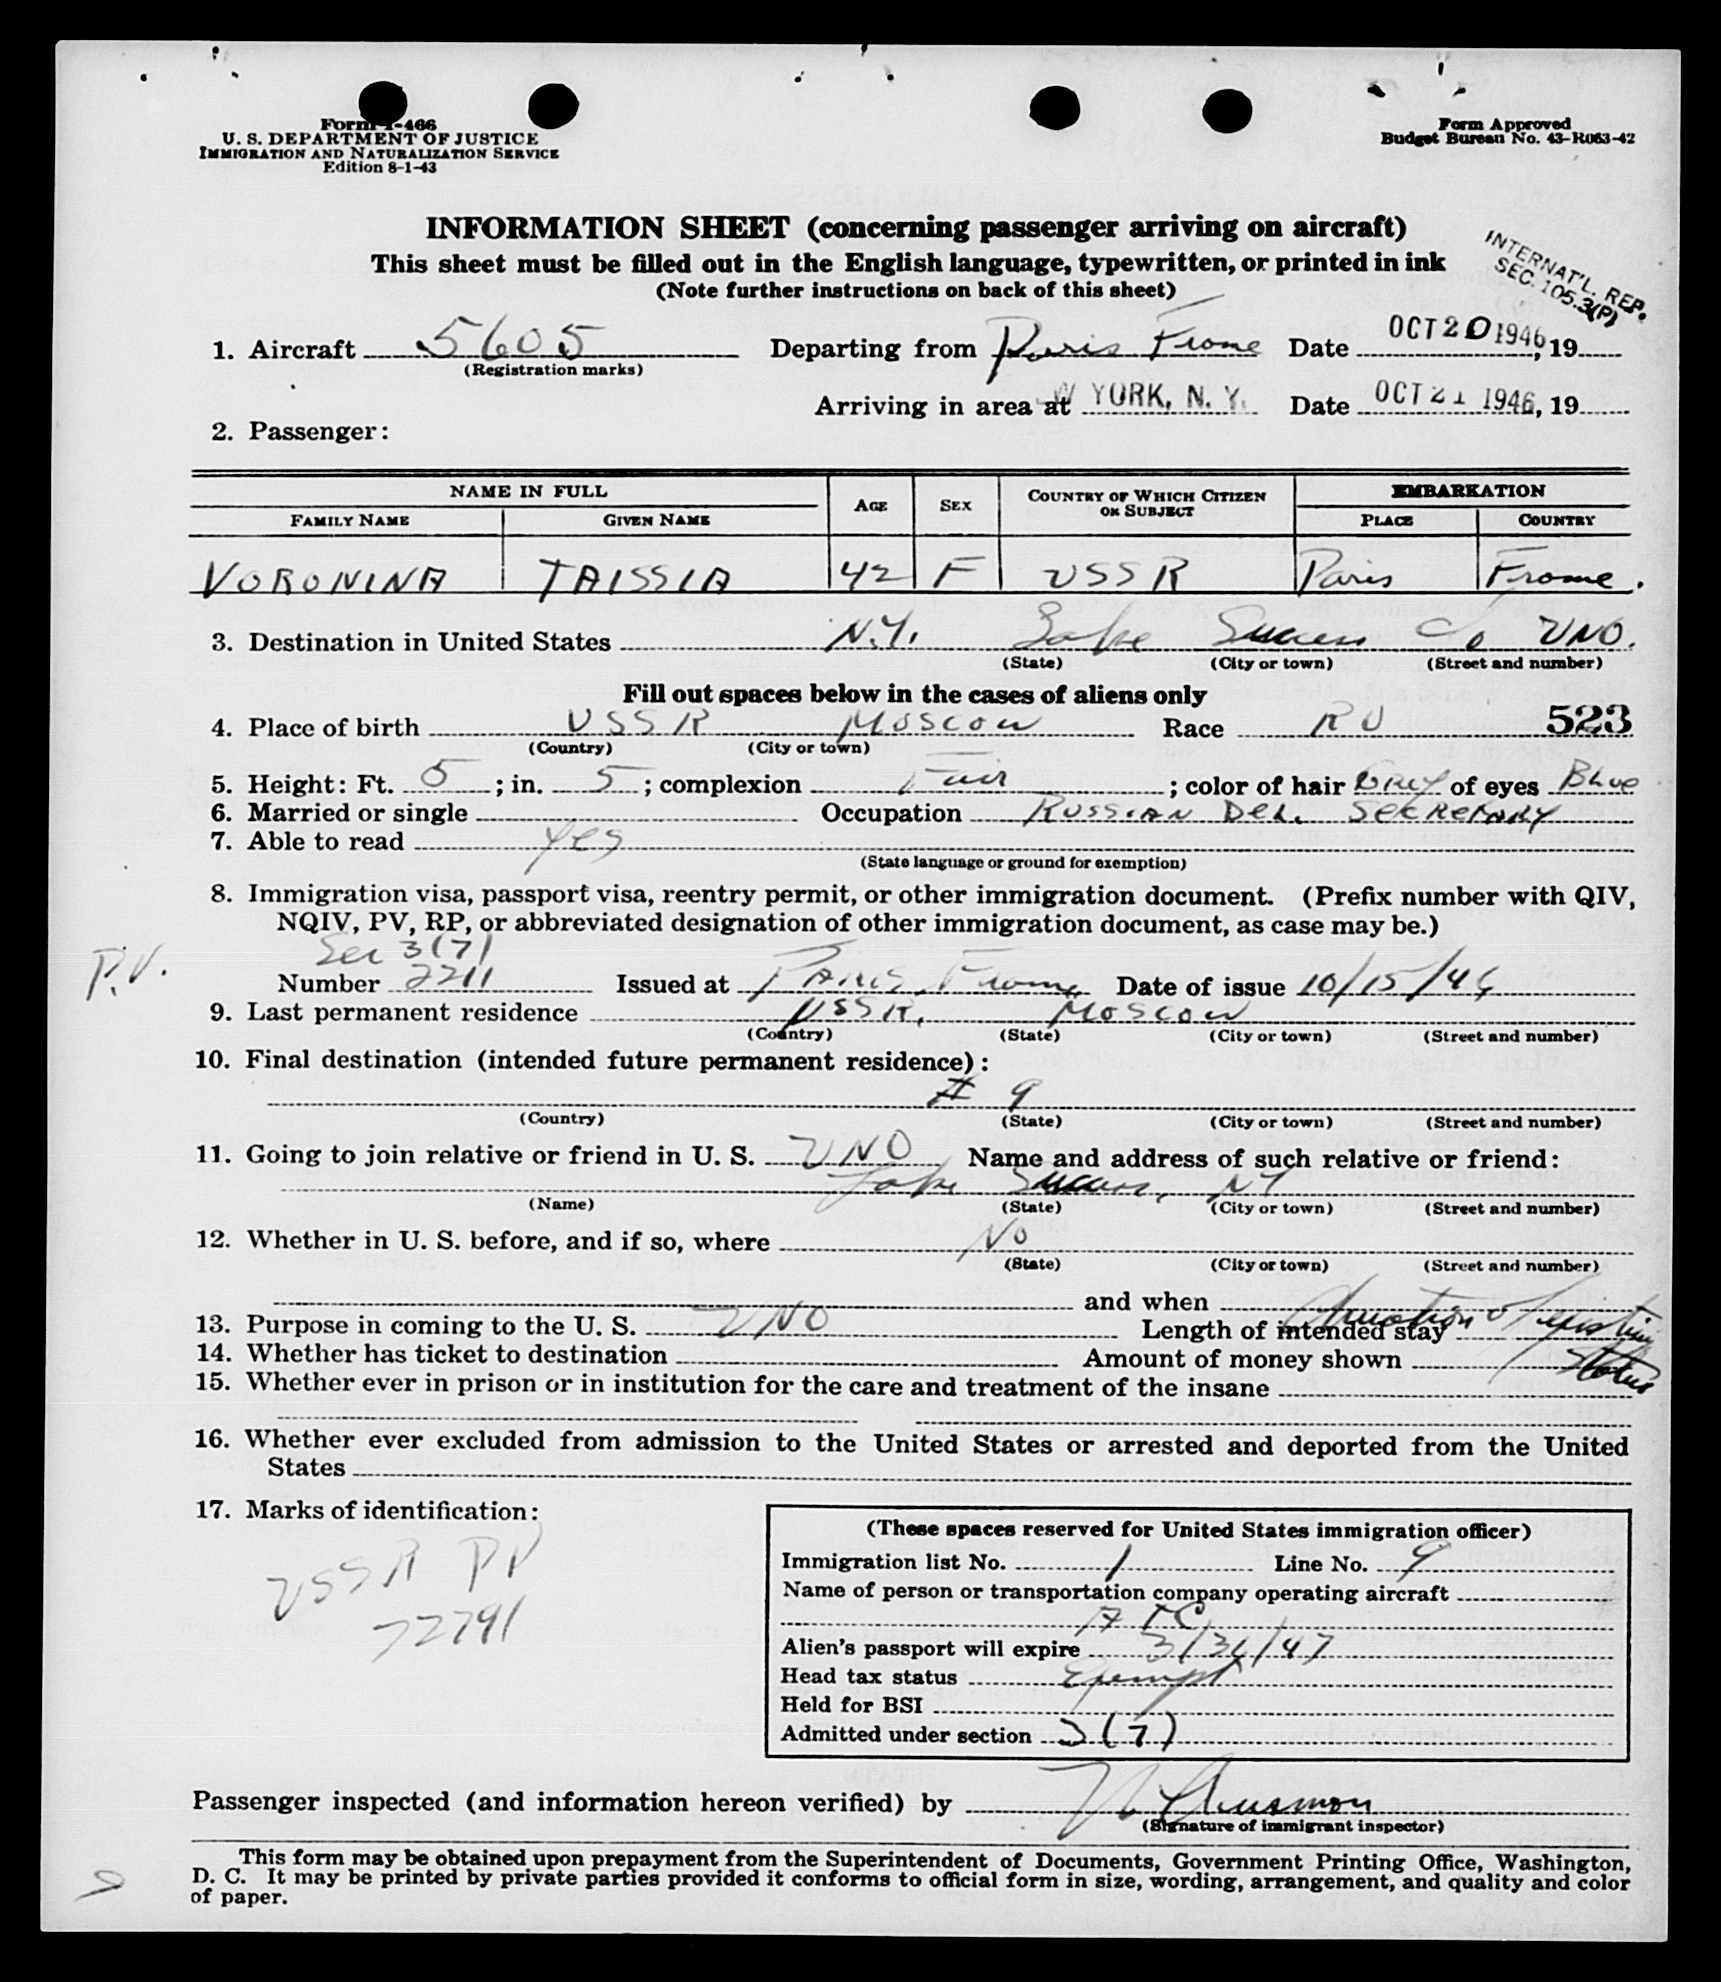 Form I-466
U. S. DEPARTMENT OF JUSTICE
IMMIGRATION AND NATURALIZATION SERVICE
Edition 8-1-43
Form Approved
Budget Bureau No. 43-R063-42
INFORMATION SHEET (concerning passenger arriving on aircraft)
This sheet must be filled out in the English language, typewritten, or printed in ink
(Note further instructions on back of this sheet)
INTERNAT'L. REP.
SEC. 105.3(P)
1. Aircraft 5605 Departing from Paris France Date OCT 20 1946, 19
(Registration marks)
Arriving in area at W YORK, N. Y. Date OCT 21 1946, 19
2. Passenger:
NAME IN FULL AGE SEX COUNTRY OF WHICH CITIZEN OR SUBJECT EMBARKATION
FAMILY NAME GIVEN NAME PLACE COUNTRY
VORONINA TAISSIA 42 F USSR Paris France.
3. Destination in United States N.Y. Lake Success c/o UNO.
(State) (City or town) (Street and number)
Fill out spaces below in the cases of aliens only
4. Place of birth USSR Moscow Race RU 523
(Country) (City or town)
5. Height: Ft. 5; in. 5; complexion Fair; color of hair Grey of eyes Blue
6. Married or single Occupation Russian Del. Secretary
7. Able to read yes
(State language or ground for exemption)
8. Immigration visa, passport visa, reentry permit, or other immigration document. (Prefix number with QIV,
NQIV, PV, RP, or abbreviated designation of other immigration document, as case may be.)
P.V. Sec 3(7)
Number 2211 Issued at Paris, France Date of issue 10/15/46
9. Last permanent residence USSR, Moscow
(Country) (State) (City or town) (Street and number)
10. Final destination (intended future permanent residence):
# 9
(Country) (State) (City or town) (Street and number)
11. Going to join relative or friend in U. S. UNO Name and address of such relative or friend:
Lake Success, NY
(Name) (State) (City or town) (Street and number)
12. Whether in U. S. before, and if so, where No
(State) (City or town) (Street and number)
and when
13. Purpose in coming to the U. S. UNO Length of intended stay Duration of existing
14. Whether has ticket to destination Amount of money shown status
15. Whether ever in prison or in institution for the care and treatment of the insane
16. Whether ever excluded from admission to the United States or arrested and deported from the United
States
17. Marks of identification:
USSR PP
72791
(These spaces reserved for United States immigration officer)
Immigration list No. 1 Line No. 9
Name of person or transportation company operating aircraft
ATC
Alien's passport will expire 3/31/47
Head tax status Exempt
Held for BSI
Admitted under section 3(7)
Passenger inspected (and information hereon verified) by
(Signature of immigrant inspector)
This form may be obtained upon prepayment from the Superintendent of Documents, Government Printing Office, Washington,
D. C. It may be printed by private parties provided it conforms to official form in size, wording, arrangement, and quality and color
of paper.